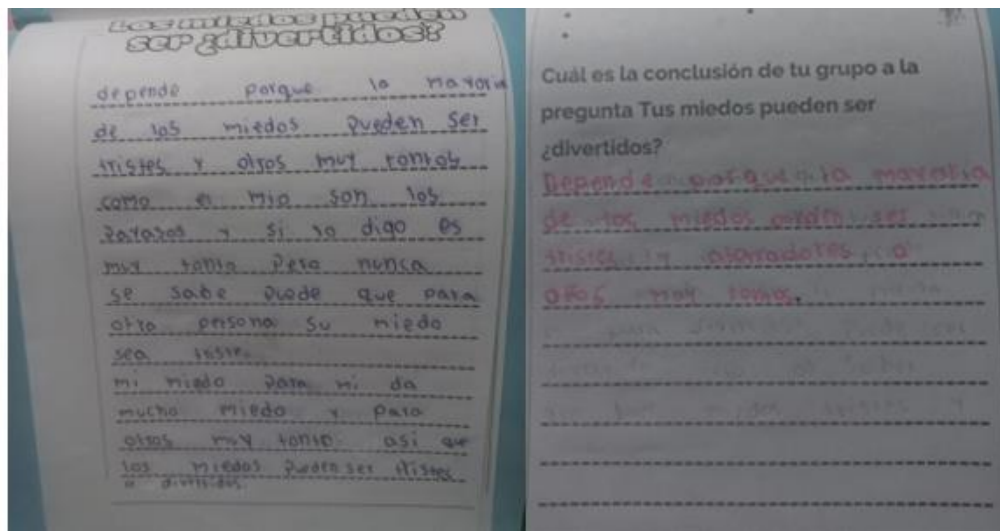 Los miedos pueden
ser ¿divertidos?
depende porque la mayoria
de los miedos pueden ser
tristes y otros muy tontos
como el mio son los
payasos y si lo digo es
muy tonto pero nunca
se sabe puede que para
otra persona su miedo
sea triste.
mi miedo para mi da
mucho miedo y para
otros muy tonto. asi que
los miedos pueden ser tristes
o divertidos.
Cuál es la conclusión de tu grupo a la
pregunta Tus miedos pueden ser
¿divertidos?
Depende porque la mayoria
de los miedos pueden ser
tristes y aterradores o
otros muy tontos.